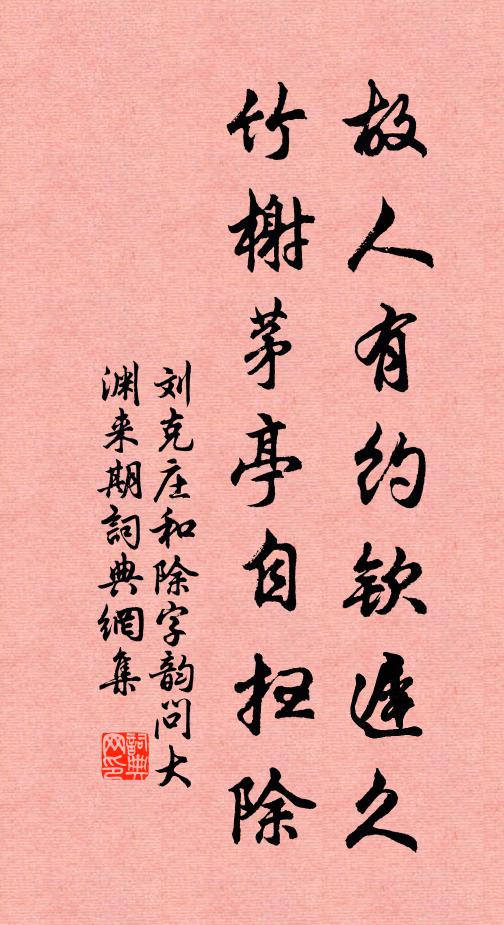 故人有约钦迟久
竹榭茅亭自扫除
刘克庄和除字韵问大
渊来期詞典網集
詞典
网印